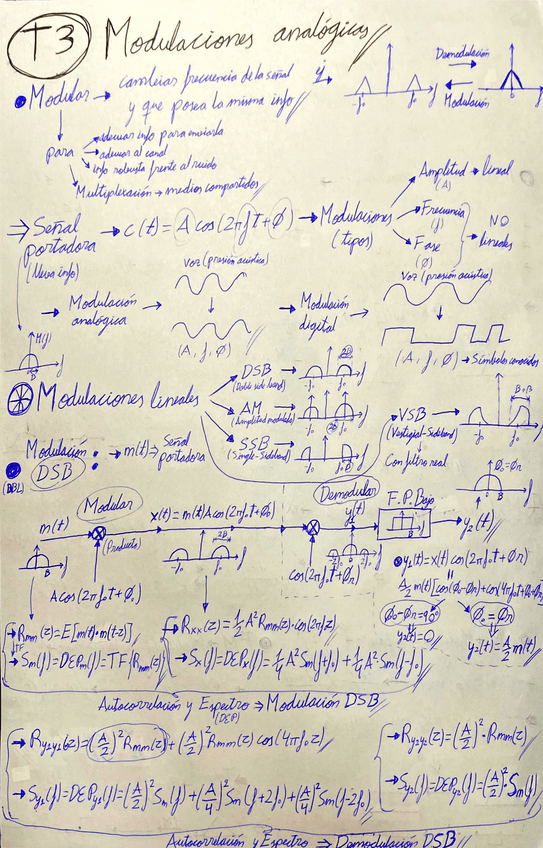 T3 Modulaciones analógicas
Modular → cambiar frecuencia de la señal
y que posea la misma info
Demodulación
Modulación
para
adecuar info para enviarla
adecuar al canal
info robusta frente al ruido
Multiplexación → medios compartidos
Señal portadora → c(t) = A cos(2πft + Ø) → Modulaciones (tipos)
(lleva info)
Amplitud → lineal
(A)
Frecuencia
(f)
Fase
(Ø)
NO lineales
Modulación analógica →
Voz (presión acústica)
(A, f, Ø)
→ Modulación digital
Voz (presión acústica)
(A, f, Ø) → Símbolos conocidos
M(f)
B
Modulaciones lineales
DSB
(Doble side band)
AM
(Amplitud modulada)
SSB
(Single-Sideband)
VSB
(Vestigial-Sideband)
Con filtro real
Modulación DSB : → m(t) → Señal portadora
(DBL)
Modular
Demodular
m(t)
(Producto)
x(t) = m(t)A cos(2πf₀t + Ø₀)
y₁(t)
F.P.Bajo
→ y₂(t)
Ø₀ = Øn
A cos(2πf₀t + Ø₀)
cos(2πf₀t + Øn)
y₁(t) = x(t) cos(2πf₀t + Øn)
A/2 m(t)[cos(Ø₀-Øn) + cos(4πf₀t + Ø₀+Øn)]
Ø₀-Øn = 90°
y₂(t) = 0
Ø₀ = Øn
y₂(t) = A/2 m(t)
→ Rmm(z) = E[m(t)·m(t-z)]
TF
→ Sm(f) = DEPm(f) = TF{Rmm(z)}
→ Rxx(z) = 1/2 A² Rmm(z)·cos(2πf₀z)
→ Sx(f) = DEPx(f) = 1/4 A² Sm(f+f₀) + 1/4 A² Sm(f-f₀)
Autocorrelación y Espectro ⇒ Modulación DSB
(DEP)
→ Ry₁y₁(z) = (A/2)² Rmm(z) + (A/2)² Rmm(z) cos(4πf₀z)
→ Sy₁(f) = DEPy₁(f) = (A/2)² Sm(f) + (A/4)² Sm(f+2f₀) + (A/4)² Sm(f-2f₀)
→ Ry₂y₂(z) = (A/2)² · Rmm(z)
→ Sy₂(f) = DEPy₂(f) = (A/2)² · Sm(f)
Autocorrelación y Espectro ⇒ Demodulación DSB